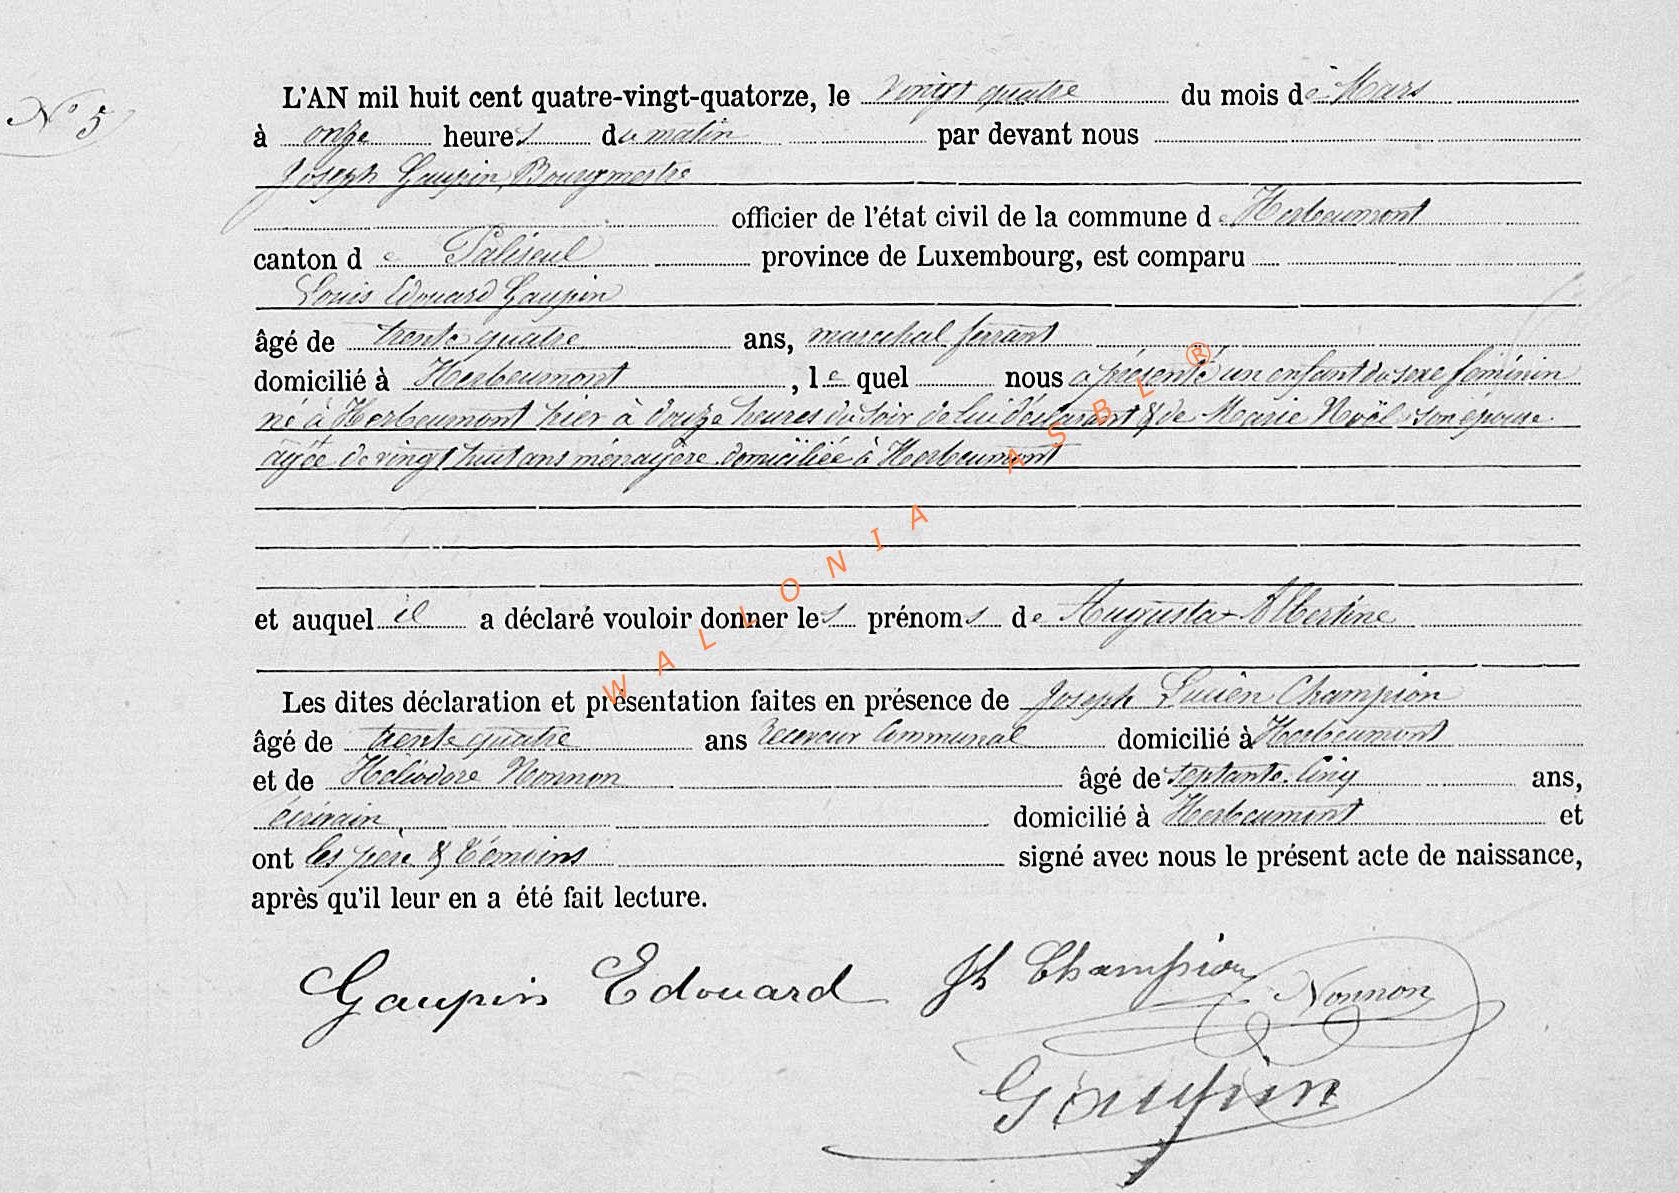 N° 5
L'AN mil huit cent quatre-vingt-quatorze, le vingt quatre du mois de Mars
à onze heures du matin par devant nous
Joseph Gaupin, Bourgmestre
officier de l'état civil de la commune de Herbeumont
canton de Paliseul province de Luxembourg, est comparu
Louis Edouard Gaupin
âgé de trente quatre ans, marechal ferrant
domicilié à Herbeumont, le quel nous a présenté un enfant du sexe féminin
né à Herbeumont hier à douze heures du soir de lui déclarant & de Marie Noël son épouse
agée de vingt huit ans ménagère domiciliée à Herbeumont
et auquel il a déclaré vouloir donner les prénoms de Augusta Albertine
Les dites déclaration et présentation faites en présence de Joseph Lucien Champion
âgé de trente quatre ans receveur Communal domicilié à Herbeumont
et de Héliodore Nonnon âgé de septante cinq ans,
écrivain domicilié à Herbeumont et
ont les père & témoins signé avec nous le présent acte de naissance,
après qu'il leur en a été fait lecture.
Gaupin Edouard Jh Champion Nonnon
Gaupin
WALLONIA ASBL ®